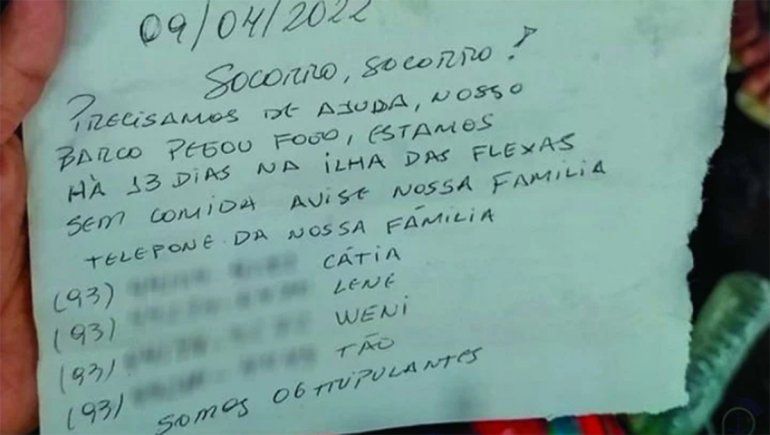 09/04/2022
SOCORRO, SOCORRO!
PRECISAMOS DE AJUDA, NOSSO
BARCO PEGOU FOGO, ESTAMOS
HÀ 13 DIAS NA ILHA DAS FLEXAS
SEM COMIDA AVISE NOSSA FAMILIA
TELEPONE DA NOSSA FÁMILIA
(93) CÁTIA
(93) LENE
(93) WENI
(93) TÃO
SOMOS 06 TRIPULANTES